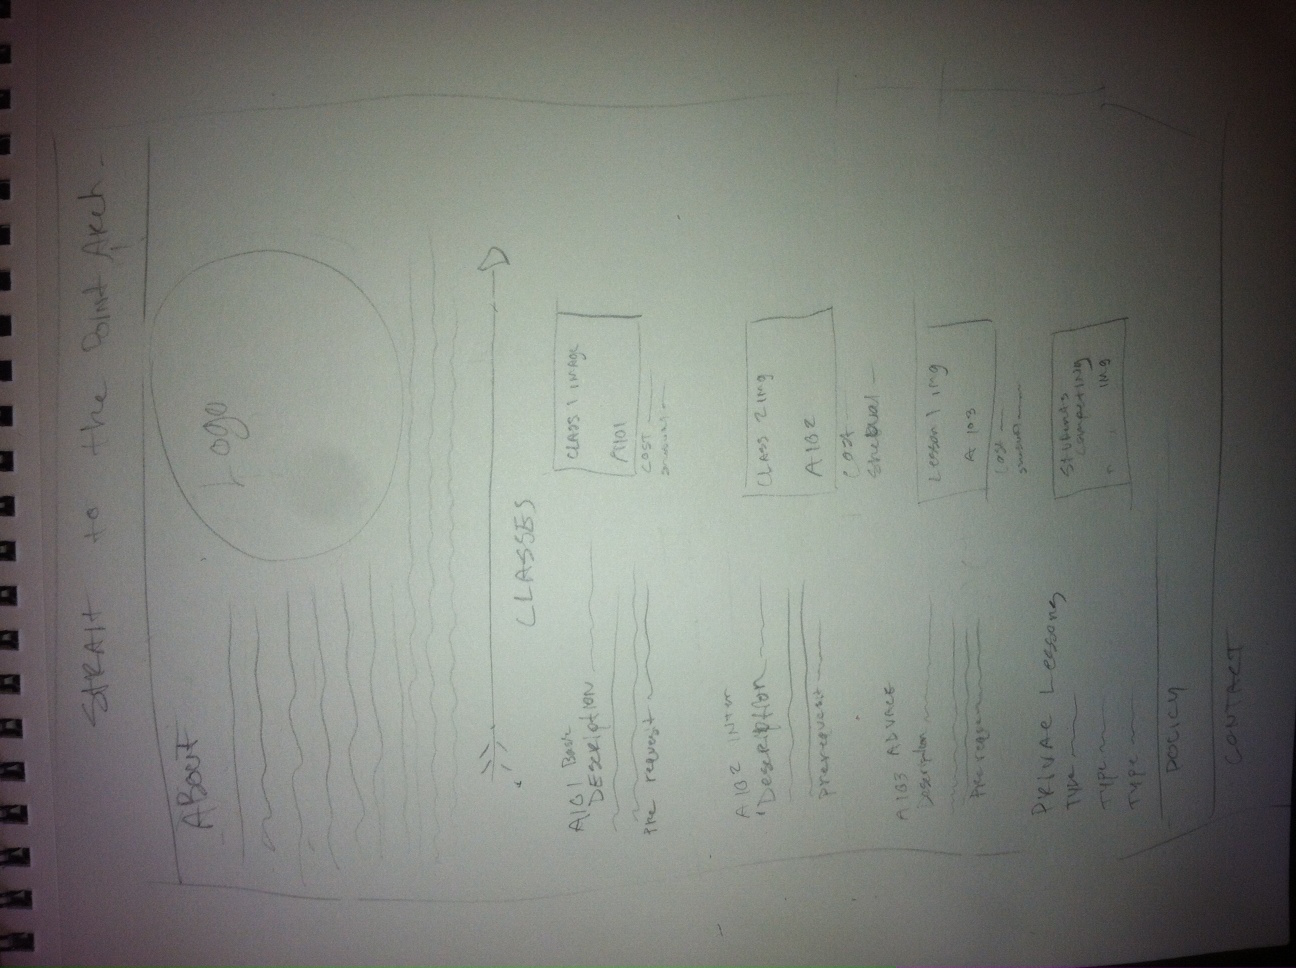 STRAIt to the Point Arch.
About
Logo
CLASSES
A1B1 Basic
DEscription
Pre request
CLASS 1 IMAGE
A1B1
COST
A1B2 Inter
Description
prerequest
CLASS 2 img
A1B2
COST
Shedual
A1B3 ADVACE
Description
Prereques
Lesson 1 img
A1B3
COST
PRIVAE Lessons
Type
Type
Type
Students
Competing
img
POLICY
CONTACT